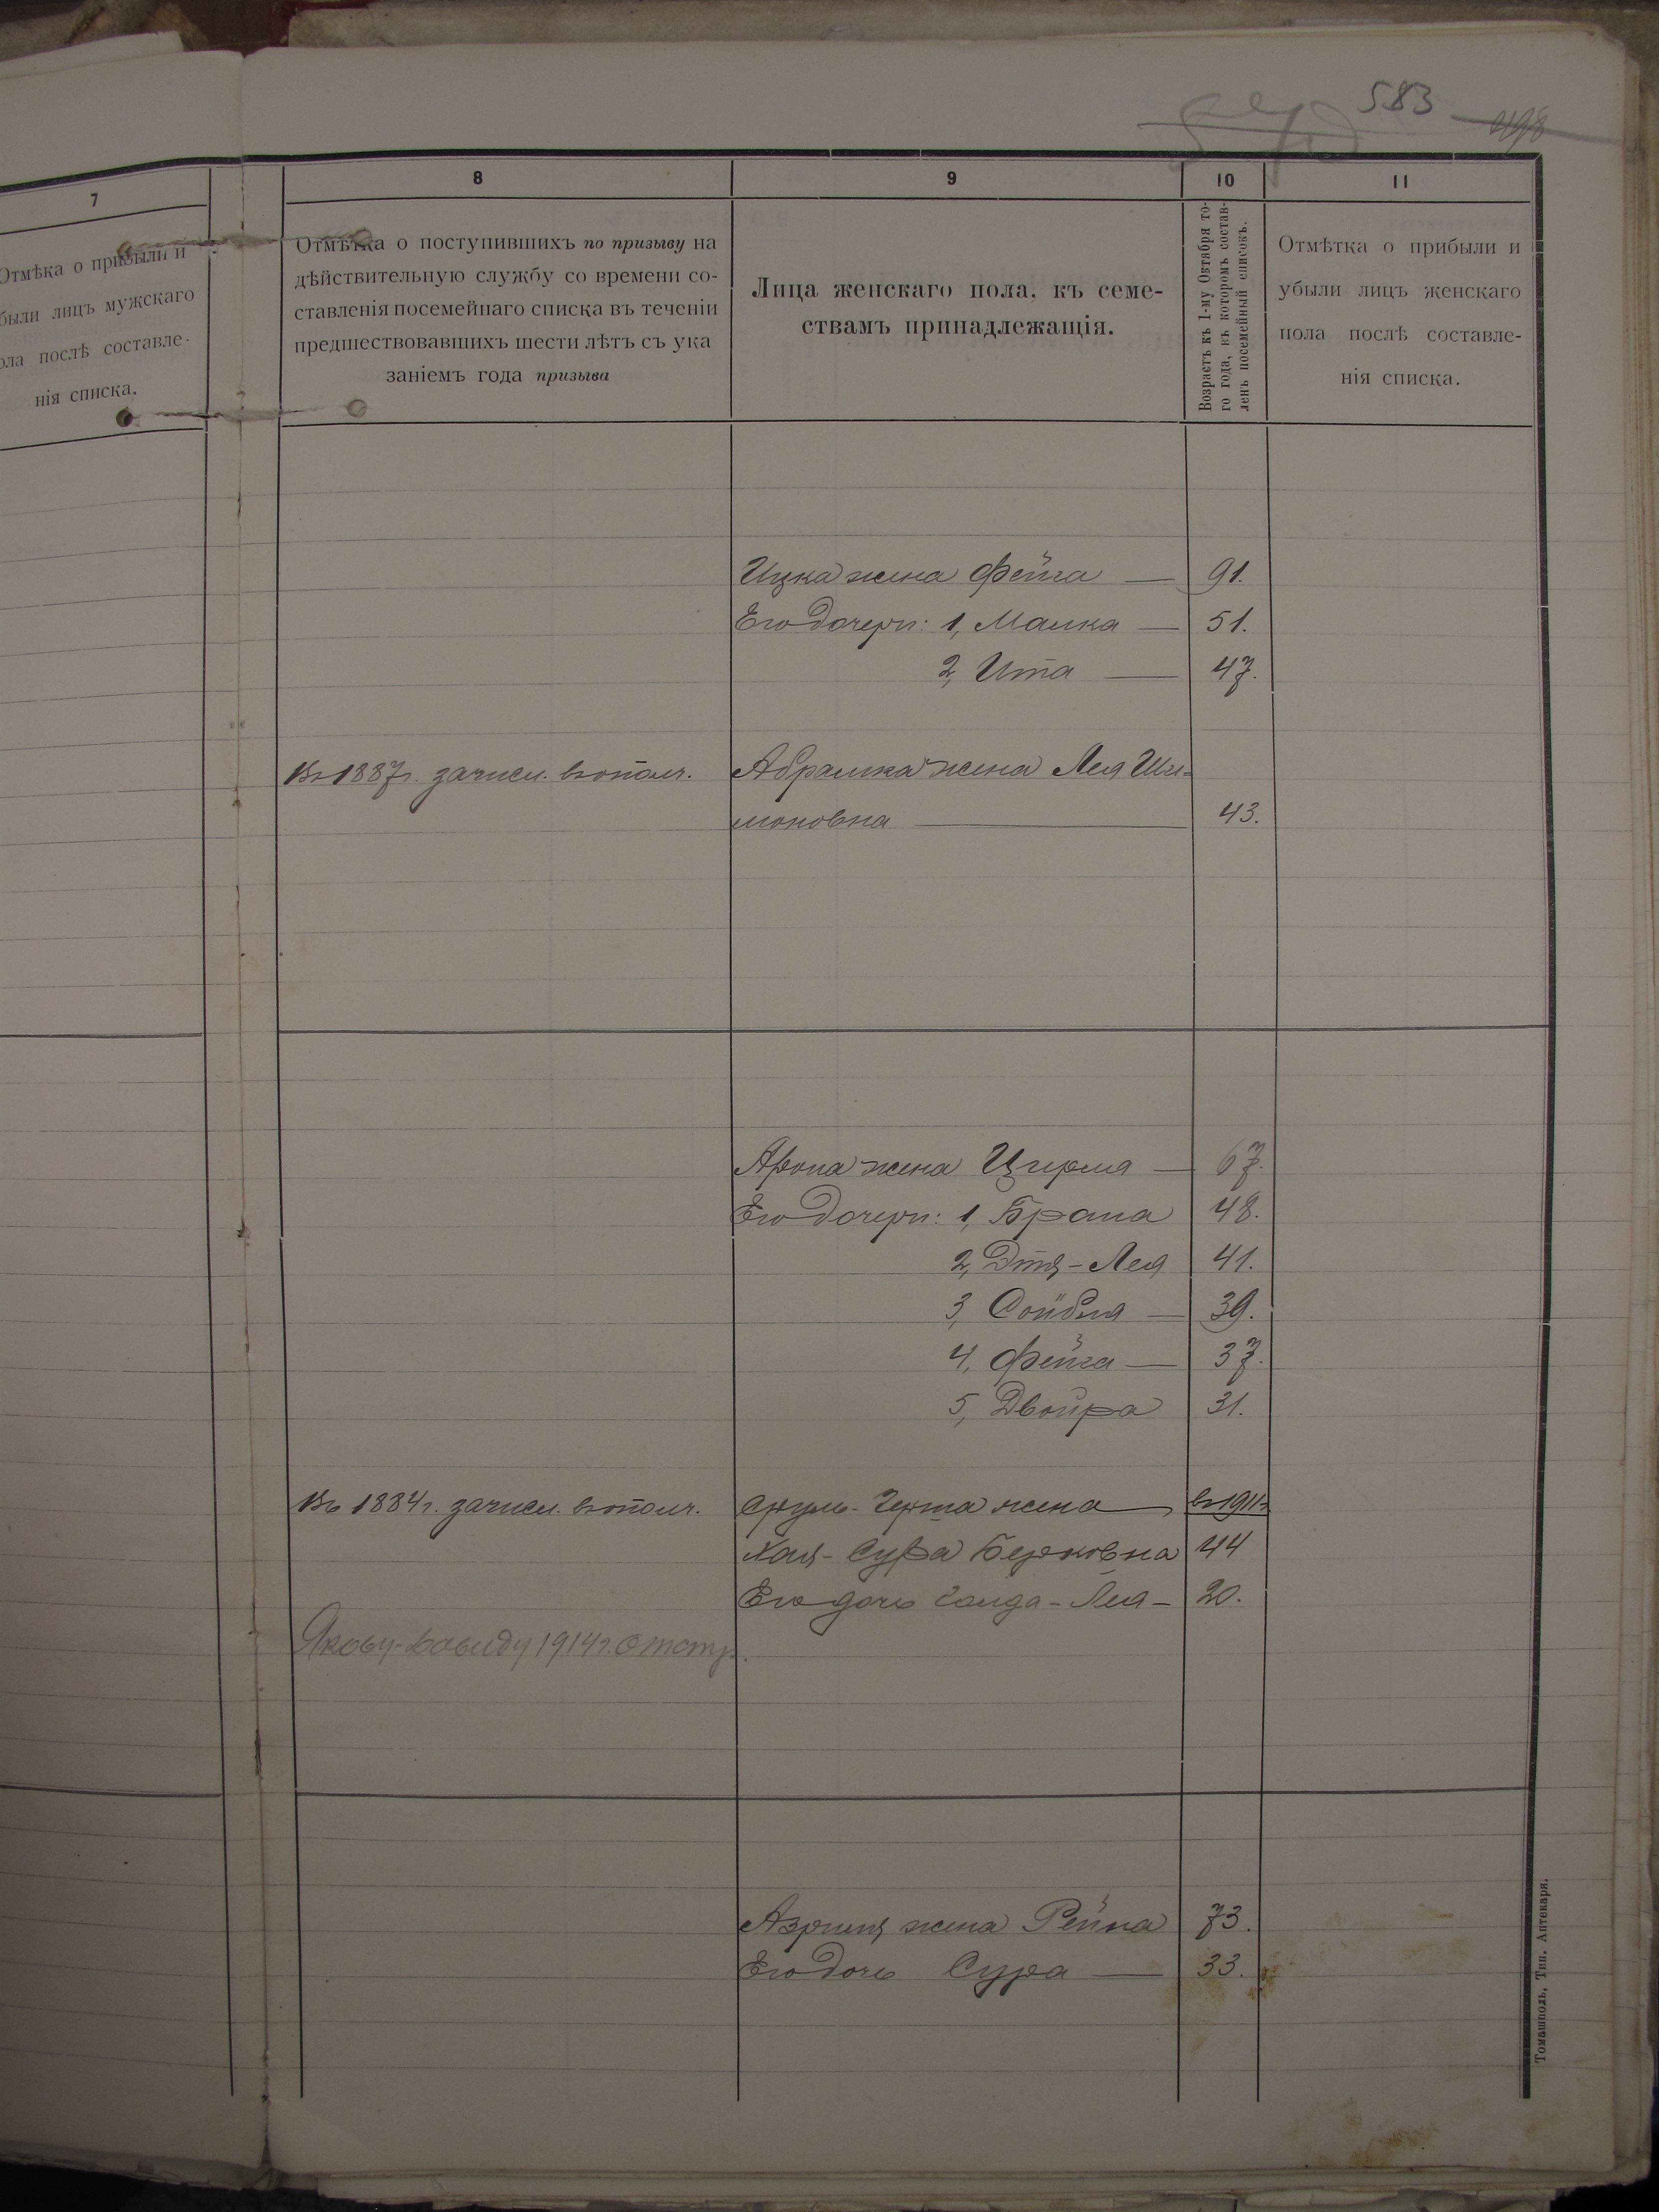 583
498
7
Отмѣка о прибыли и
были лицъ мужскаго
ола послѣ составле-
нія списка.
8
Отмѣтка о поступившихъ по призыву на
дѣйствительную службу со времени со-
ставленія посемейнаго списка въ теченіи
предшествовавшихъ шести лѣтъ съ ука
заніемъ года призыва
9
Лица женскаго пола, къ семе-
ствамъ принадлежащія.
10
Возрастъ къ 1-му Октября то-
го года, въ которомъ состав-
ленъ посемейный списокъ.
11
Отмѣтка о прибыли и
убыли лицъ женскаго
пола послѣ составле-
нія списка.
Ицка жена Фейга — 91.
Его дочери: 1, Малка — 51.
2, Ита — 47.
Въ 1887г. зачисл. въ ополч. Абрамка жена Лея Ши-
моновна — 43.
Арона жена Цирля — 67.
Его дочери: 1, Брана 48.
2, Этя-Лея 41.
3, Сойбля — 39.
4, Фейга — 37.
5, Двойра 31.
Въ 1884г. зачисл. въ ополч. Сруль-Герша жена — въ 1911г.
Хая-Сура Берковна 44
Его дочь Голда-Лея — 20.
Якову-Давиду 1914г. отстр.
Азриля жена Рейна 73.
Его дочь Сура — 33.
Томашполь, Тип. Аптекаря.